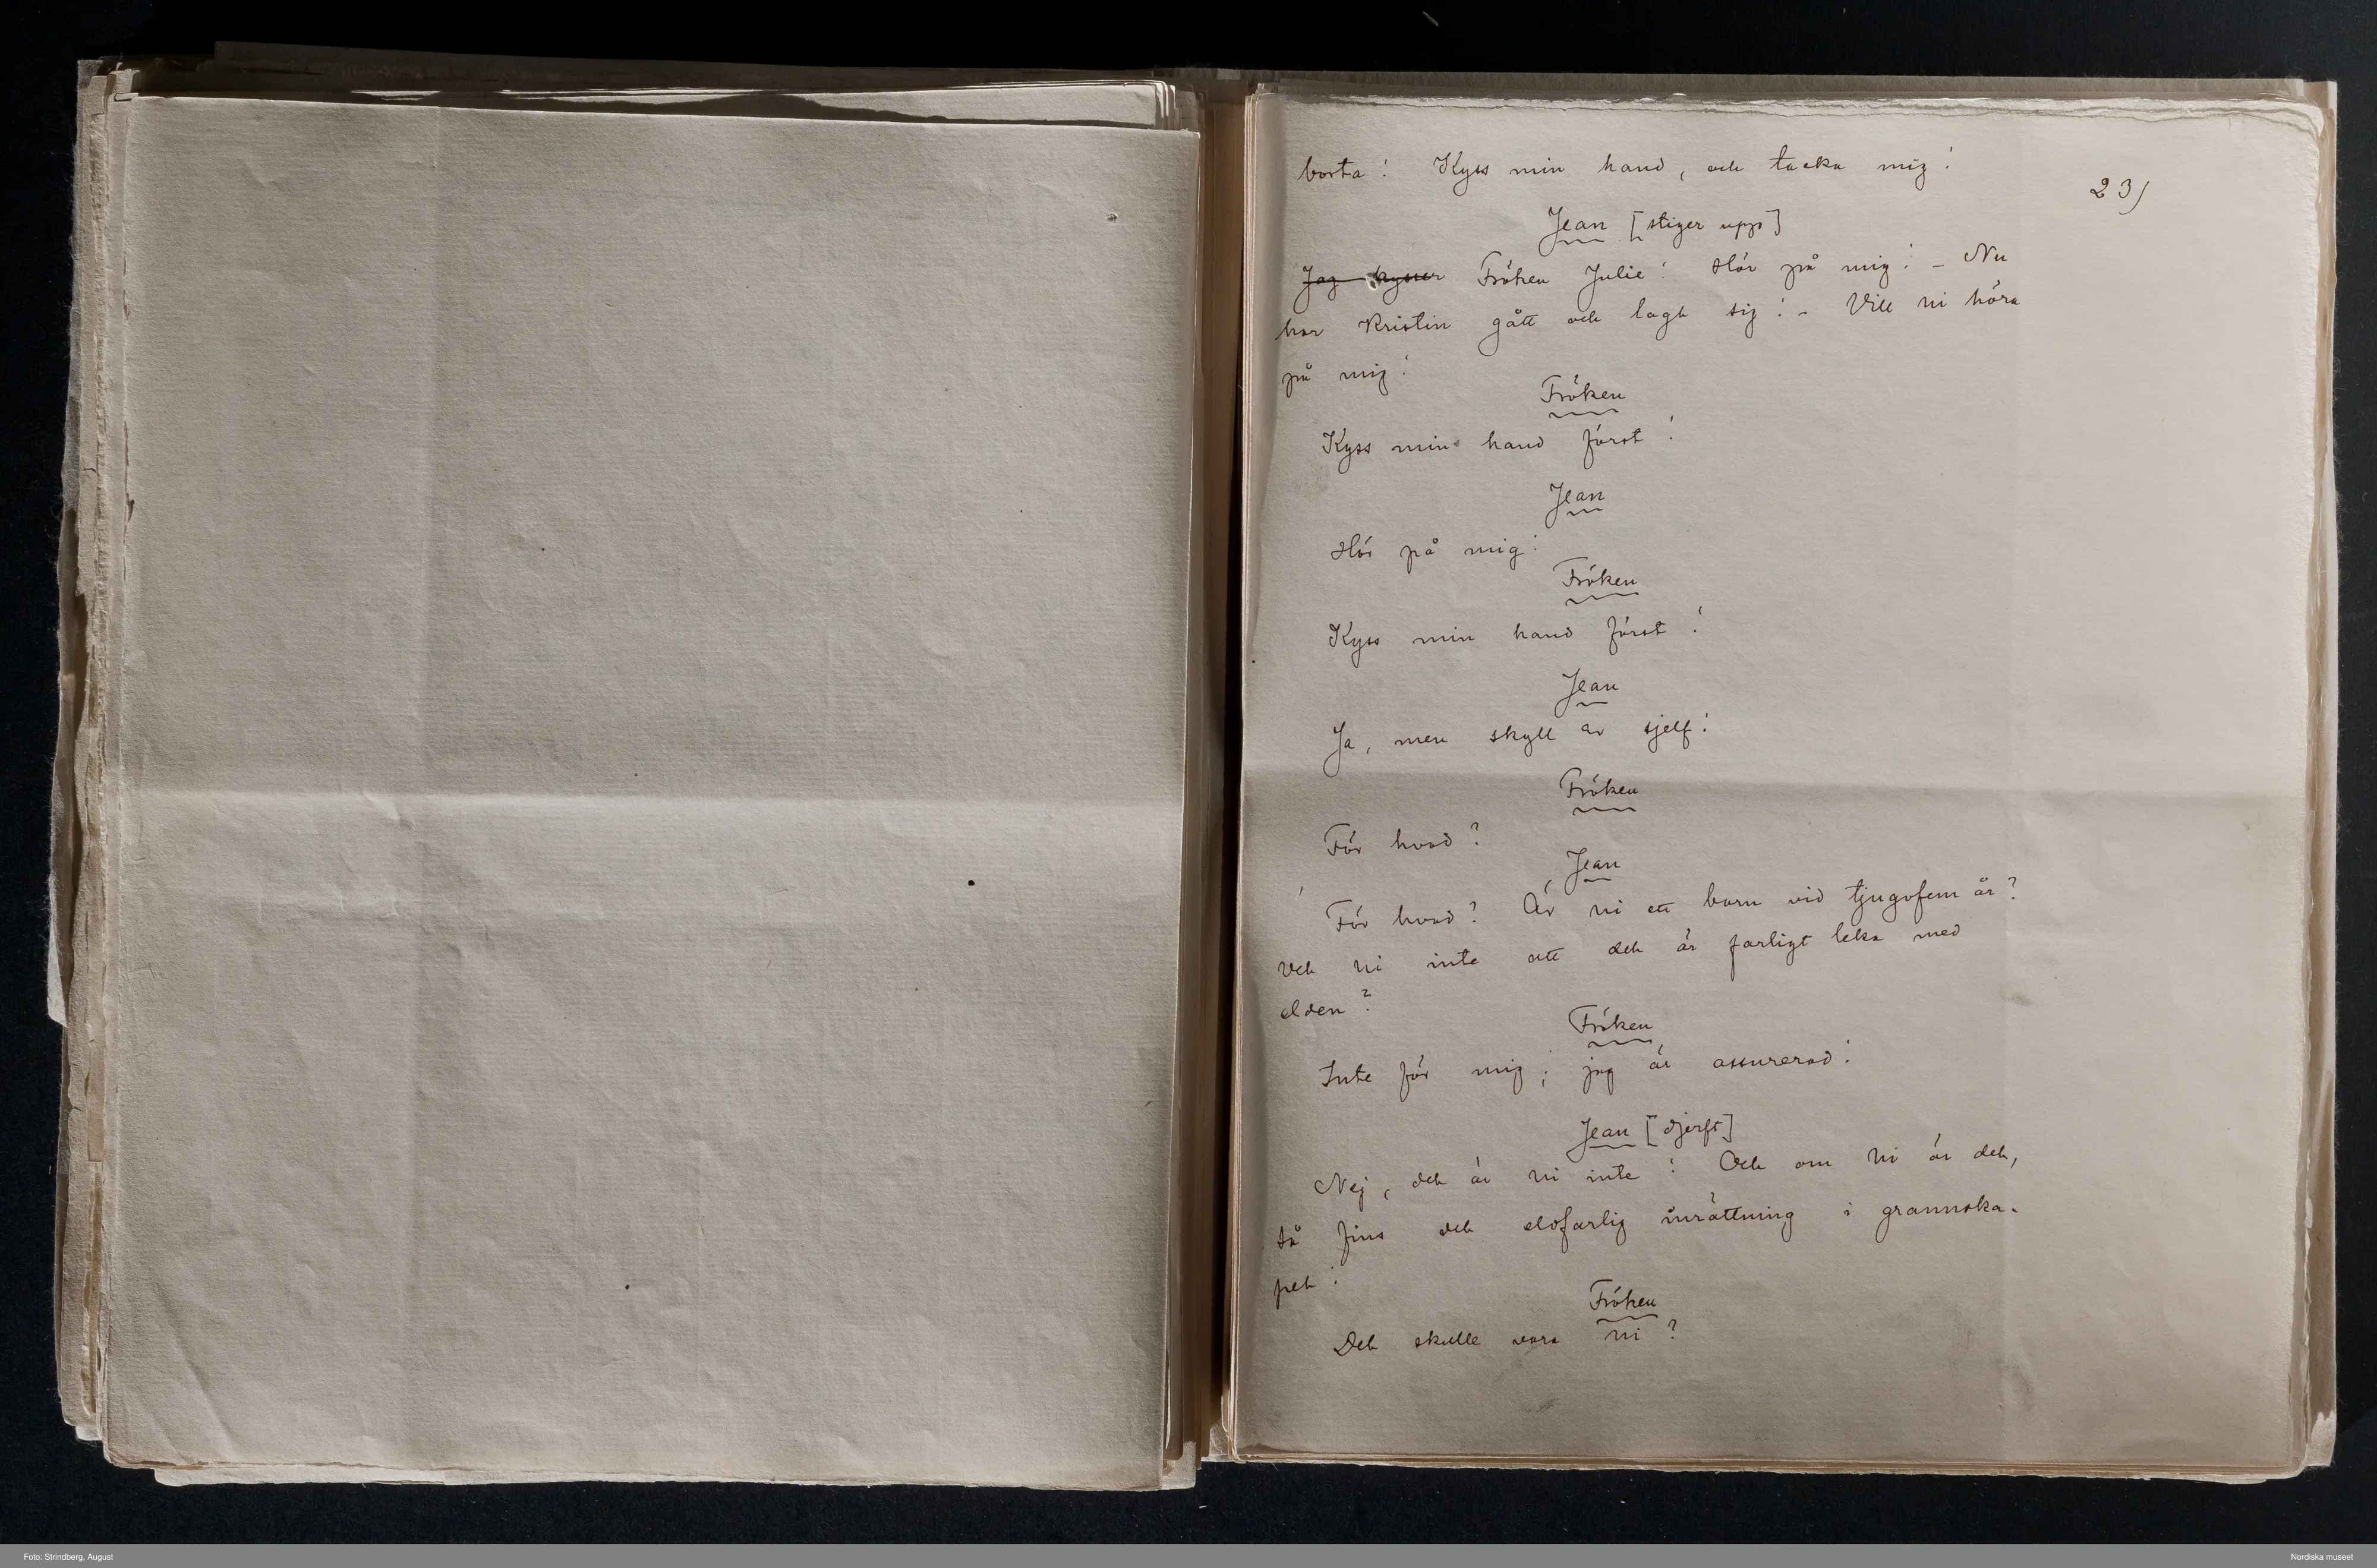 borta! Kyss min hand, och tacka mig!
23)
Jean [stiger upp]
Jag kysser Fröken Julie! Hör på mig! – Nu
har Kristin gått och lagt sig! – Vill ni höra
på mig!
Fröken
Kyss min hand först!
Jean
Hör på mig!
Fröken
Kyss min hand först!
Jean
Ja, men skyll er sjelf!
Fröken
För hvad?
Jean
För hvad? Är ni ett barn vid tjugofem år?
Vet ni inte att det är farligt leka med
elden?
Fröken
Inte för mig; jag är assurerad!
Jean [djerft]
Nej, det är ni inte! Och om ni är det,
så fins det eldfarlig inrättning i grannska-
pet!
Fröken
Det skulle vara ni?
Foto: Strindberg, August
Nordiska museet